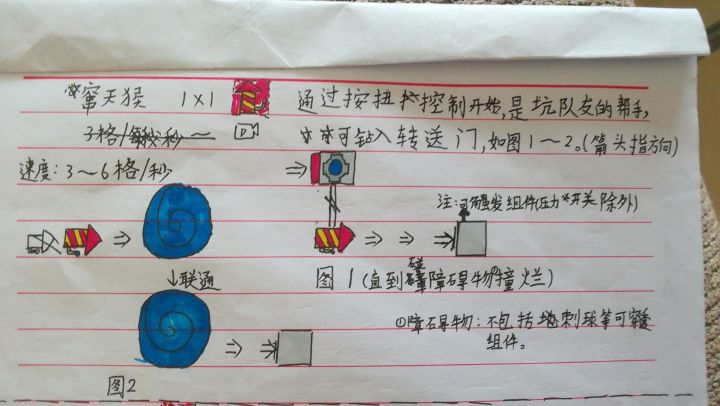 窜天猴 1×1 通过按扭控制开始,是坑队友的帮手,
3格/每秒~
可钻入转送门,如图1~2。(箭头指方向)
速度:3~6格/秒
注:可触发组件(压力开关除外)
图1(直到碰障碍物撞烂)
↓联通
①障碍物:不包括地刺球等可穿透组件。
图2